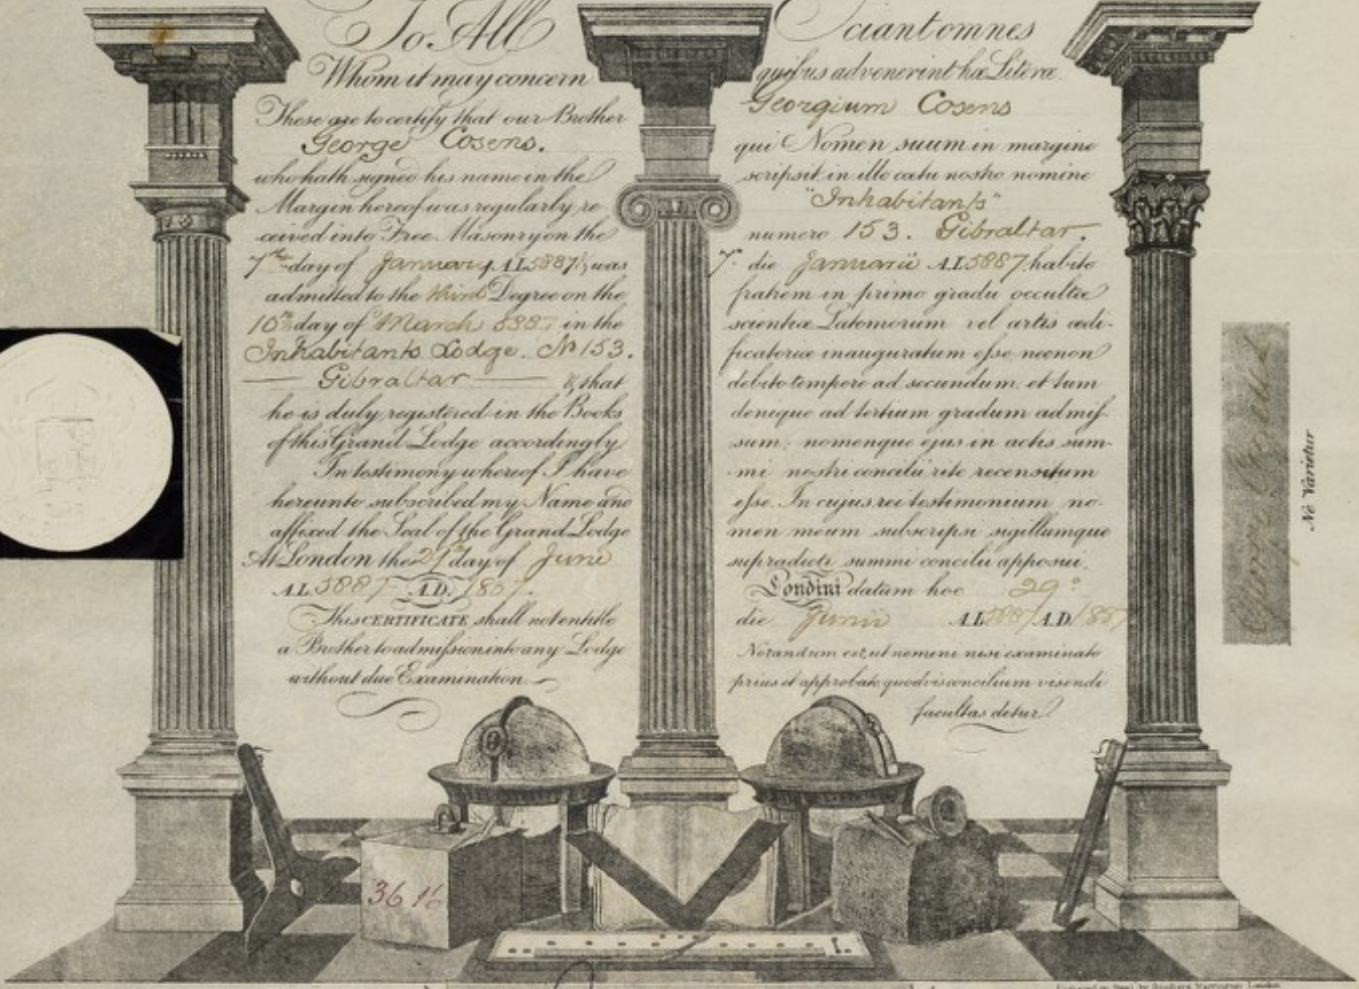 To All
Whom it may concern
These are to certify that our Brother
George Cosens.
who hath signed his name in the
Margin hereof was regularly re-
ceived into Free Masonry on the
7th day of January A.L. 5887 & was
admitted to the third Degree on the
10th day of March 5887 in the
Inhabitants Lodge. No 153.
Gibraltar & that
he is duly registered in the Books
of this Grand Lodge accordingly
In testimony whereof I have
hereunto subscribed my Name and
affixed the Seal of the Grand Lodge
At London the 29th day of June
A.L. 5887 A.D. 1887.
This CERTIFICATE shall not entitle
a Brother to admission into any Lodge
without due Examination.
Sciant omnes
quibus advenerint hæ Literæ
Georgium Cosens
qui Nomen suum in margine
scripsit in illo cœtu nostro nomine
"Inhabitants"
numero 153. Gibraltar.
7º die Januarii A.L. 5887 habito
fratrem in primo gradu occultæ
scientiæ Latomorum vel artis ædi-
ficatoriæ inauguratum esse necnon
debito tempore ad secundum et tum
denique ad tertium gradum admis-
sum; nomenque ejus in actis sum-
mi nostri concilii rite recensitum
esse. In cujus rei testimonium no-
men meum subscripsi sigillumque
supradicti summi concilii apposui.
Londini datum hoc 29º
die Junii A.L. 5887 A.D. 1887
Notandum est, ut nemeni nisi examinato
prius et approbato quodvis concilium visendi
facultas detur.
Ne Varietur
36 16